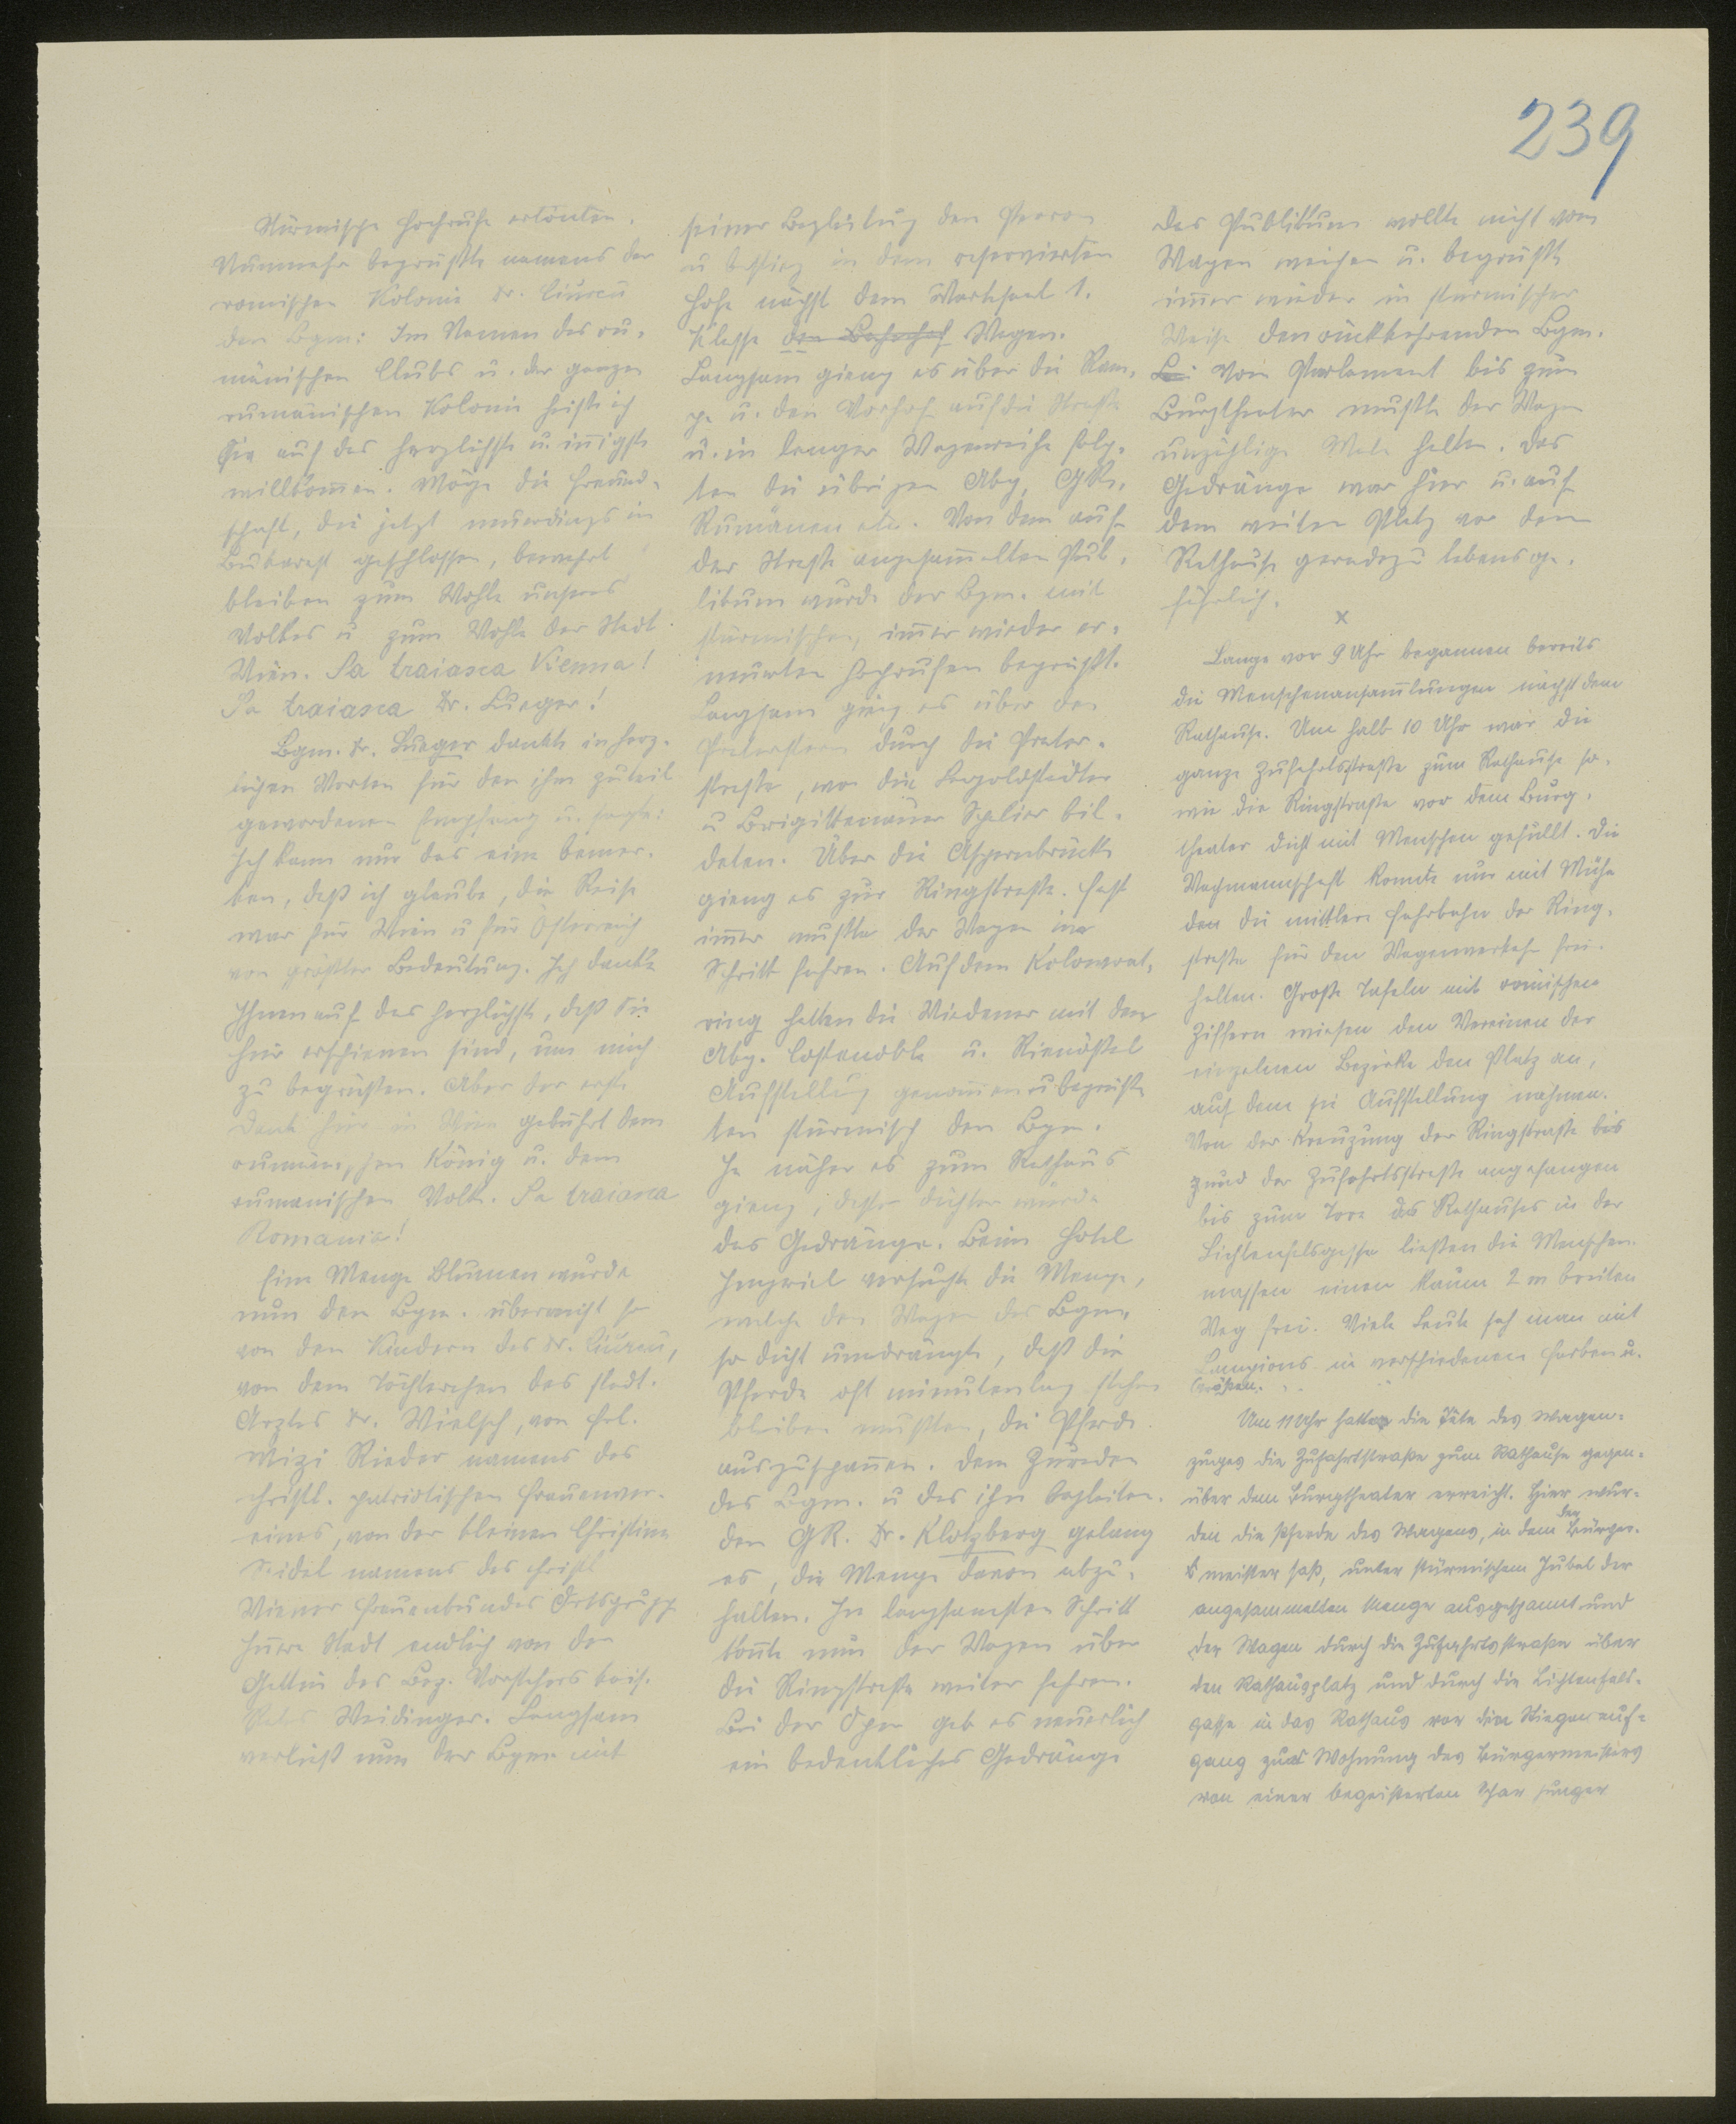 239
Stürmische Hochrufe ertönten.
Nunmehr begrüßte namens der
romischen Kolonie Dr. Ciurcu
den Bgm: Im Namen des ru-
mänischen Clubs u. der ganzen
rumänischen Kolonie heiße ich
Sie auf das herzlichste u. iñigste
willkom̄en. Möge die Freund-
schaft, die jetzt neuerdings in
Bukarest geschlossen, bewahrt
bleiben zum Wohle unseres
Volkes u. zum Wohle der Stadt
Wien. Sa traiasca Vienna!
Sa traiasca Dr. Lueger!
Bgm. Dr. Lueger dankte in herz-
lichen Worten für den ihm zuteil
gewordenen Empfang u. sagte:
Ich kann nur das eine bemer-
ken, daß ich glaube, die Reise
war für Wien u für Österreich
von größter Bedeutung. Ich danke
Ihnen auf das herzlichste, daß Sie
hier erschienen sind, um mich
zu begrüßen. Aber der erste
Dank hier in Wien gebührt dem
rumänischen König u. dem
rumänischen Volk. Sa traiasca
Romania!
Eine Menge Blumen wurde
nun dem Bgm. überreicht so
von den Kindern des Dr. Ciurcu,
von dem Töchterchen des städt.
Arztes Dr. Wielsch, von Frl.
Mizi Rieder namens des
christl. patriotischen Frauenver-
eines, von der kleinen Christine
Seidel namens des christl
Wiener Frauenbundes Ortsgruppe
Iñere Stadt endlich von der
Gattin des Bez. Vorstehers kais.
Rates Weidinger. Langsam
verließ nun der Bgm. mit
seiner Begleitung den Perron
u bestieg in dem reservierten
Hofe nächst dem Wartesaal 1.
Klasse den Bahnhof Wagen.
Langsam gieng es über die Ram-
pe u. den Vorhof auf die Straße
u. in langer Wagenreihe folg-
ten die übrigen Abg, GRe,
Rumänen etc. Von dem auf
der Straße angesam̄elten Pub-
likum wurde der Bgm. mit
stürmischen, im̄er wieder er-
neuerten Hochrufen begrüßt.
Langsam gieng es über den
Praterstern durch die Prater-
straße, wo die Leopoldstädter
u Brigittenauer Spalier bil-
deten. Über die Aspernbrücke
gieng es zur Ringstraße. Fast
im̄er mußte der Wagen im
Schritt fahren. Auf dem Kolowrat-
ring hatten die Wiedener mit den
Abg. Costenoble u. Rienößl
Aufstellung genom̄en u begrüß-
ten stürmisch den Bgm.
Je näher es zum Rathaus
gieng, desto dichter wurde
das Gedränge. Beim Hotel
Imperial versuchte die Menge,
welche den Wagen des Bgm.
so dicht umdrängte, daß die
Pferde oft minutenlang stehen
bleiben mußten, die Pferde
auszuspañen. Dem Zureden
des Bgm. u des ihn begleiten-
den GR. Dr. Klotzberg gelang
es, die Menge davon abzu-
halten. Im langsamsten Schritt
koñte nun der Wagen über
die Ringstraße weiter fahren.
Bei der Oper gab es neuerlich
ein bedenkliches Gedränge
Das Publikum wollte nicht vom
Wagen weichen u. begrüßte
im̄er wieder in stürmischer
Weise den rückkehrenden Bgm.
Bei Vom Parlament bis zum
Burgtheater mußte der Wagen
unzählige Male halten. Das
Gedränge war hier u. auf
dem weiten Platz vor dem
Rathause geradezu lebensge-
fährlich.
x
Lange vor 9 Uhr begannen bereits
die Menschenansam̄lungen nächst dem
Rathause. Um halb 10 Uhr war die
ganze Zufahrtsstraße zum Rathause so-
wie die Ringstraße vor dem Burg-
theater dicht mit Menschen gefüllt. Die
Wachmannschaft konnte nur mit Mühe
den die mittlere Fahrbahn der Ring-
straße für den Wagenverkehr frei-
halten. Große Tafeln mit römischen
Ziffern wiesen den Vereinen der
einzelnen Bezirke den Platz an,
auf dem sie Aufstellung nahmen.
Von der Kreuzung der Ringstraße bis
zund der Zufahrtsstraße angefangen
bis zum Tore des Rathauses in der
Lichtenfelsgasse ließen die Menschen-
massen einen kaum 2 m breiten
Weg frei. Viele Leute sah man mit
Lampions in verschiedenen Farben u.
Größen.
Um 11 Uhr hatte die Tête des Wagen-
zuges die Zufahrtstraße zum Rathause gegen-
über dem Burgtheater erreicht. Hier wur-
den die Pferde des Wagens, in dem der Bürger-
meister saß, unter stürmischem Jubel der
angesammelten Menge ausgespannt und
der Wagen durch die Zufahrtsstraße über
den Rathausplatz und durch die Lichtenfels-
gasse in das Rathaus vor den Stiegenauf-
gang zur Wohnung des Bürgermeisters
von einer begeisterten Schar junger